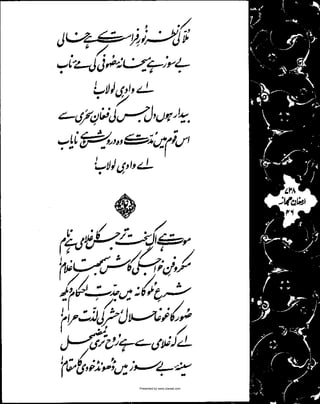 مُلّا کی نظر نورِ فراست سے ہے خالی
بے سوز ہے میخانۂ صوفی کی مئے ناب
اے وادیِ لولاب!
بیدار ہوں دل جس کی فغانِ سحری سے
اس قوم میں مدّت سے وہ درویش ہے نایاب
اے وادیِ لولاب!
موت ہے اک سخت تر جس کا غلامی ہے نام
مکر و فنِ خواجگی کاش سمجھتا غلام!
شرعِ ملوکانہ میں جدّتِ احکام دیکھ
صُور کا غوغا حلال، حشر کی لذّت حرام!
اے کہ غلامی سے ہے رُوح تری مضمحل
سینۂ بے سوز میں ڈھونڈ خودی کا مقام!
۷۳۸
ارمغانِ حجاز
۴۶
Presented by www.iqbalrahber.com